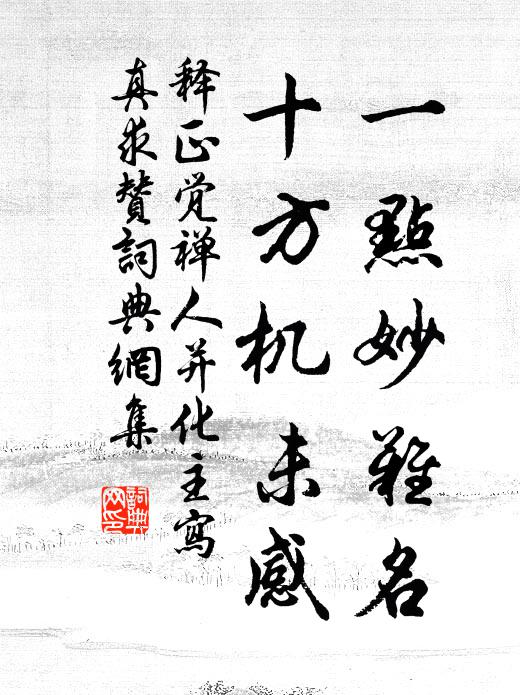 一點妙難名
十方机未感
释正觉禅人并化主寫
真求赞詞典網集
詞典网印